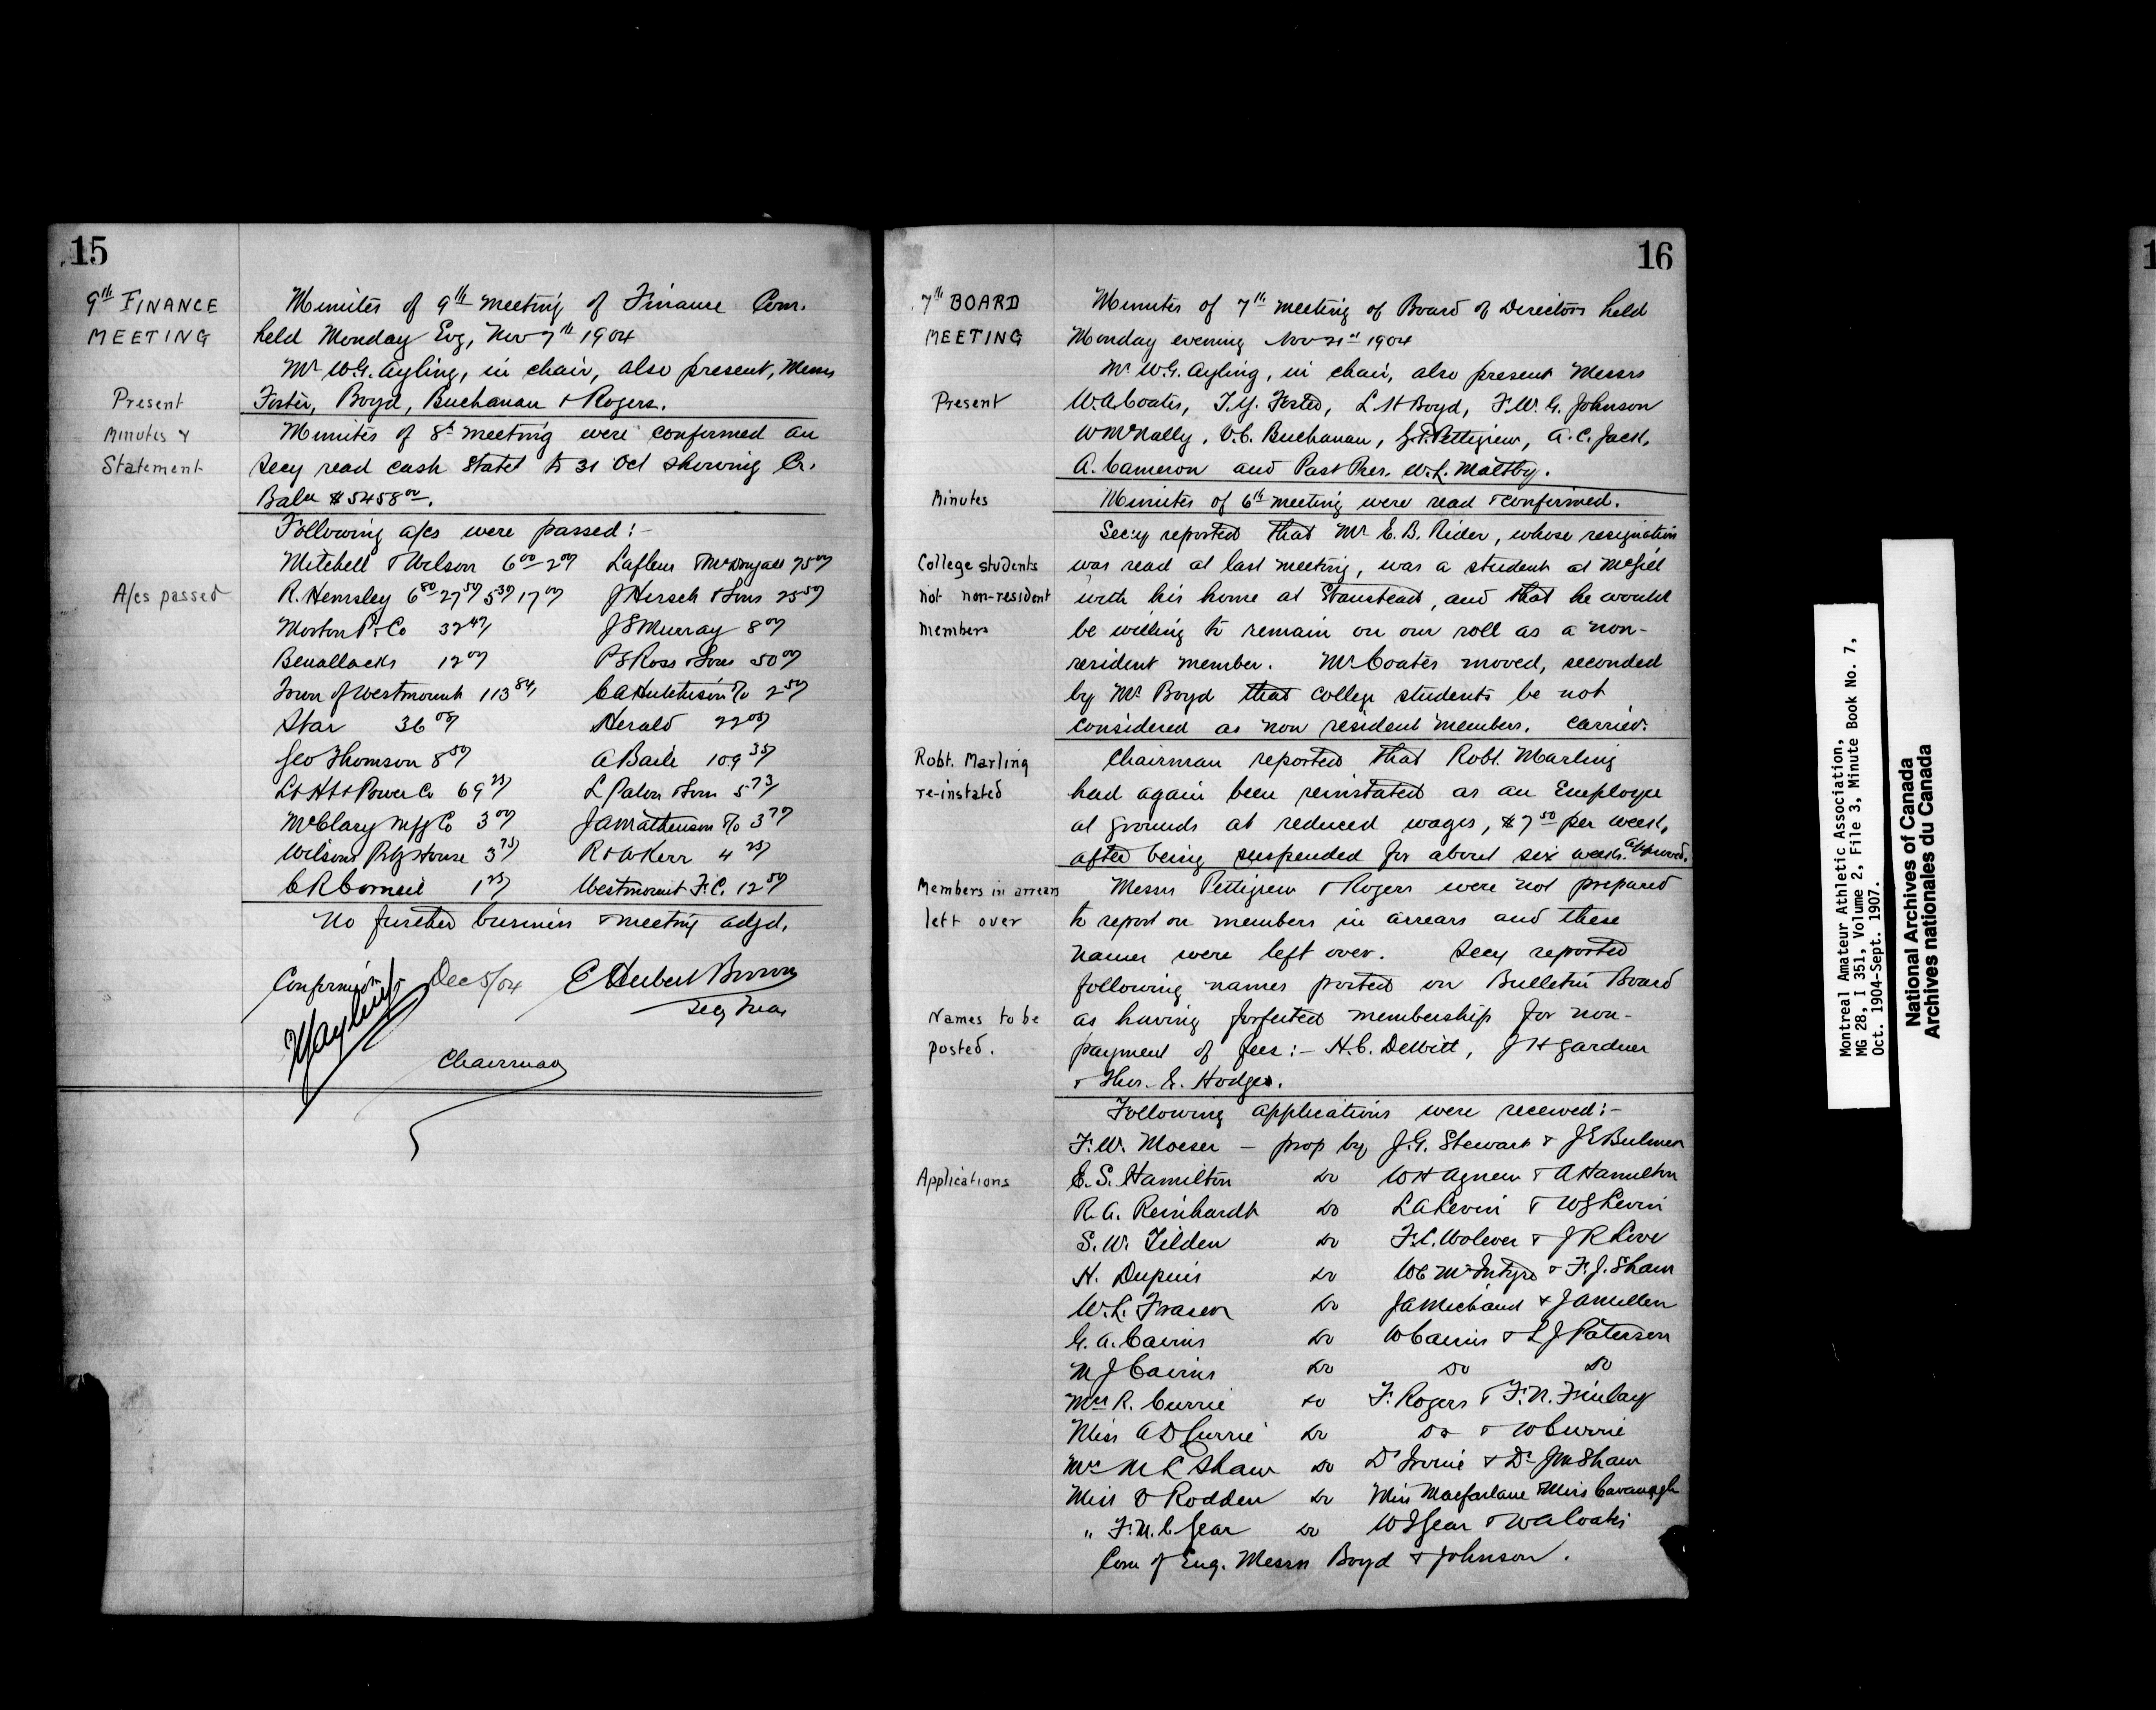 15
9th FINANCE
MEETING
Minutes of 9th meeting of Finance Com.
held Monday Evg, Nov 7th 1904
Mr W.G. Ayling, in chair, also present, Messrs
Present
Foster, Boyd, Buchanan & Rogers.
Minutes &
Statement
Minutes of 8th meeting were confirmed an
Secy read cash statet to 31 Oct showing Cr.
Balce $5458 00.
Following a/cs were passed:-
A/cs passed
Mitchell & Wilson 6 00 - 2 00 Lafleur & McDougall 75 00
R. Hemsley 6 80 27 50 5 30 17 00 J Hirsch & Sons 25 50
Morton P. Co 32 47 J S Murray 8 00
Benallacks 12 00 P S Ross & Sons 50 00
Town of Westmount 113 84 C A Hutchison 2 50
Star 36 00 Herald 22 00
Geo Thomson 8 50 A Baile 109 35
Lt Ht & Power Co 69 25 L Paton & Son 5 73
McClary Mfg Co 3 00 J A Mathewson 3 77
Wilsons Ptg House 3 75 R & W Kerr 4 25
C R Corneil 1 25 Westmount F.C. 12 50
No further business & meeting adjd.
Confirmed Dec 5/04 C Herbert Brown
Secy Treas
W G Ayling
Chairman
16
7th BOARD
MEETING
Minutes of 7th meeting of Board of Directors held
Monday evening Nov 21st 1904
Mr W.G. Ayling, in chair, also present Messrs
Present
W.A. Coates, T.Y. Foster, L H Boyd, F.W.G. Johnson
W McNally, V.C. Buchanan, G.T. Pettigrew, A.C. Jack,
A. Cameron and Past Pres. W.L. Maltby.
Minutes
Minutes of 6th meeting were read & confirmed.
Secy reported that Mr E.B. Rider, whose resignation
College students
not non-resident
members
was read at last meeting, was a student at McGill
with his home at Stanstead, and that he would
be willing to remain on our roll as a non-
resident member. Mr Coates moved, seconded
by Mr Boyd that college students be not
considered as non resident members. Carried.
Robt. Marling
re-instated
Chairman reported that Robt. Marling
had again been reinstated as an Employe
at grounds at reduced wages, $7 50 per week,
after being suspended for about six weeks. Approved.
Members in arrears
left over
Messrs Pettigrew & Rogers were not prepared
to report on members in arrears and these
names were left over. Secy reported
following names posted on Bulletin Board
Names to be
posted.
as having forfeited membership for non-
payment of fees:- H.C. DeWitt, J H Gardner
& Thos. E. Hodges.
Following applications were received:-
Applications
F.W. Moeser - prop by J.G. Stewart & J E Bulmer
E.S. Hamilton do W H Agnew & A Hamilton
R.A. Reinhardt do L A Levin & W S Levin
S.W. Tilden do F.C. Wolever & J R Love
H. Dupuis do W C McIntyre & F.J. Shaw
W.L. Fraser do J A Michaud & J A Millen
G.A. Cairns do W Cairns & L J Paterson
M J Cairns do do do
Mrs R. Currie do F. Rogers & F.N. Finlay
Miss A D Currie do do & W Currie
Mrs M L Shaw do Dr Irvine & Dr J M Shaw
Miss O Rodden do Miss Macfarlane & Miss Cavanagh
" F.M.C Gear do W I Gear & W A Coates
Com of Enq. Messrs Boyd & Johnson.
Montreal Amateur Athletic Association,
MG 28, I 351, Volume 2, File 3, Minute Book No. 7,
Oct. 1904-Sept. 1907.
National Archives of Canada
Archives nationales du Canada